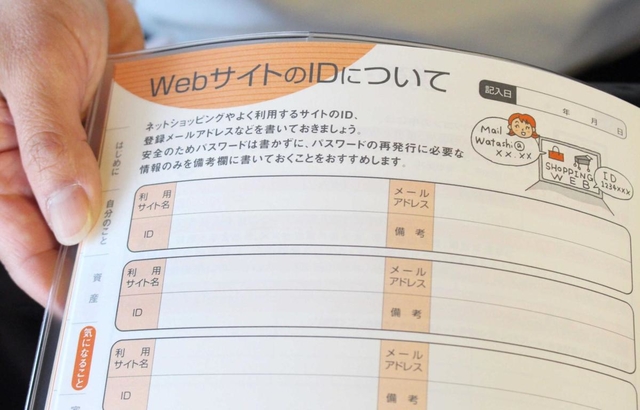 WebサイトのIDについて
記入日 年 月 日
ネットショッピングやよく利用するサイトのID、
登録メールアドレスなどを書いておきましょう。
安全のためパスワードは書かずに、パスワードの再発行に必要な
情報のみを備考欄に書いておくことをおすすめします。
Mail
Watashi@
××.××
SHOPPING
WEB
ID
1234×××
はじめに
自分のこと
資産
気になること
利用
サイト名
メール
アドレス
ID
備考
利用
サイト名
メール
アドレス
ID
備考
利用
サイト名
メール
アドレス
ID
備考